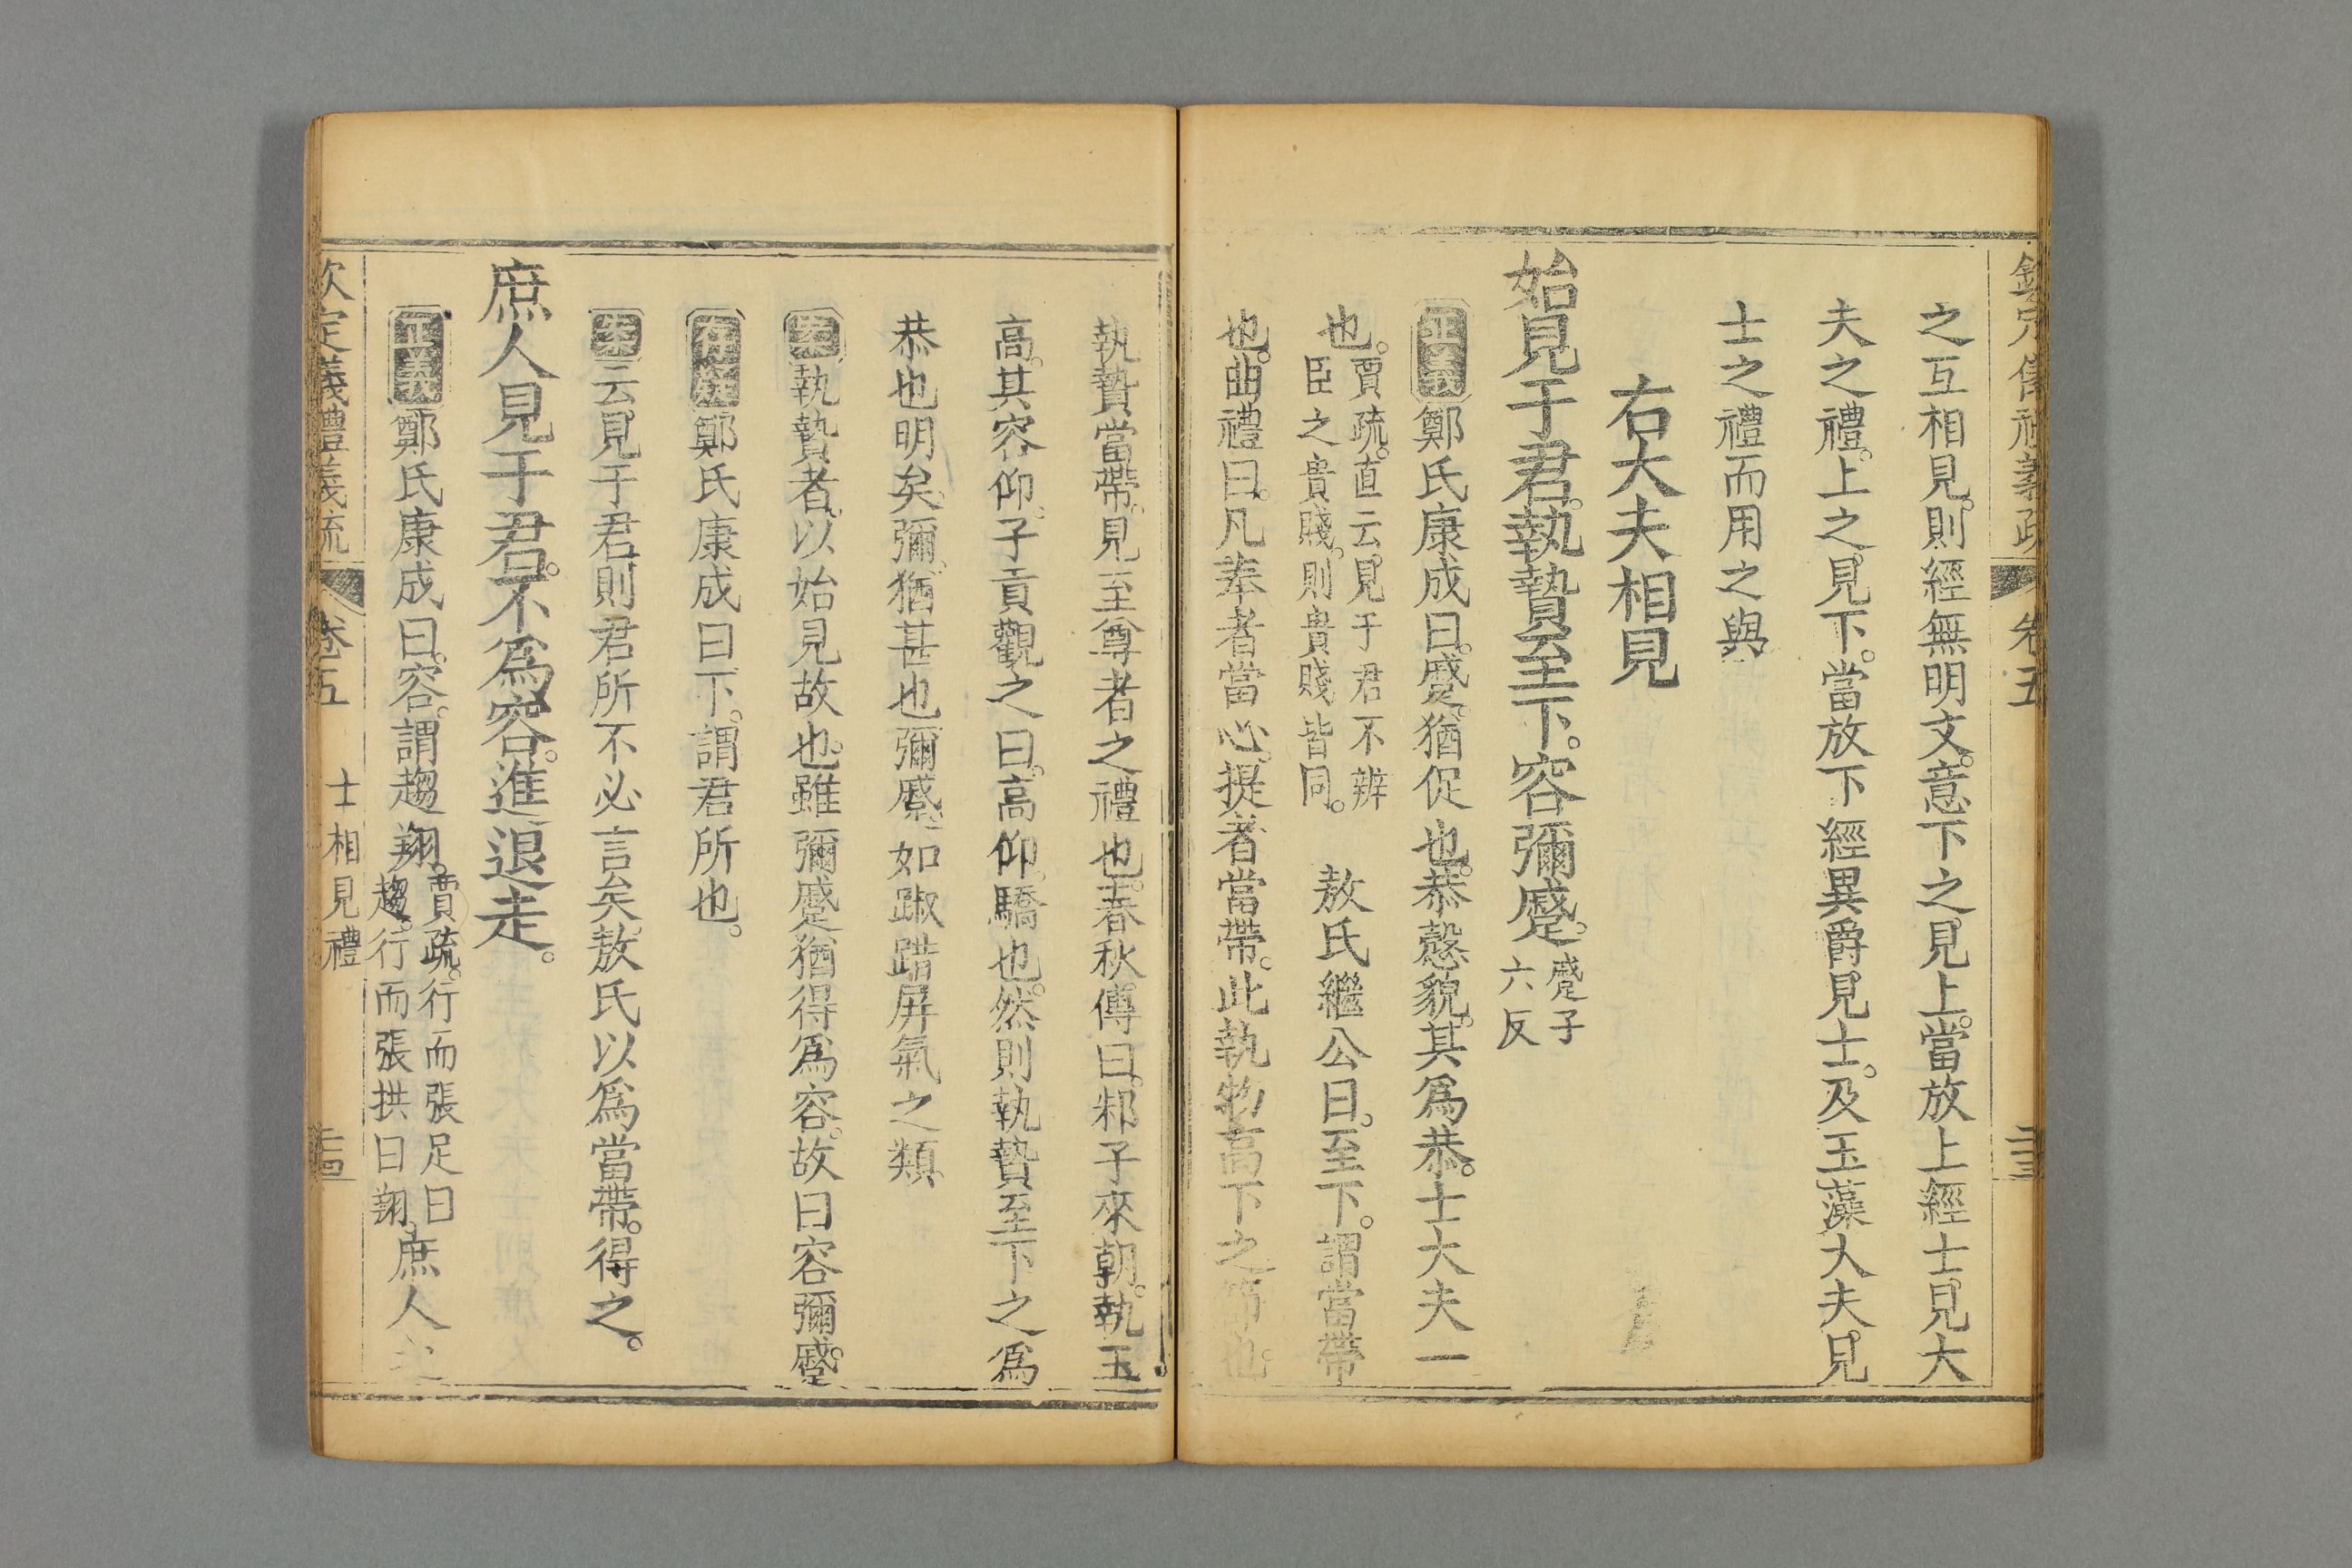 之互相見。則經無明文。意下之見上。當放上經士見大
夫之禮。上之見下。當放下經異爵見士。及玉藻大夫見
士之禮而用之與
右大夫相見
始見于君。執贄至下。容彌蹙。蹙子六反
正義鄭氏康成曰。蹙。猶促也。恭慤貌。其為恭。士大夫一
也。賈疏。直云。見于君不辨臣之貴賤。則貴賤皆同。敖氏繼公曰。至下。謂當帶
也。曲禮曰。凡奉者當心。提者當帶。此執物高下之節也。
執贄當帶。見至尊者之禮也。春秋傳曰。邾子來朝。執玉
高。其容仰。子貢觀之曰。高仰。驕也。然則執贄至下之為
恭也明矣。彌。猶甚也。彌蹙。如踧踖屏氣之類。
案執贄者。以始見故也。雖彌蹙猶得為容。故曰容彌蹙。
存疑鄭氏康成曰下。謂君所也。
案云見于君。則君所不必言矣。敖氏以為當帶。得之。
庶人見于君。不為容。進退走。
正義鄭氏康成曰。容。謂趨翔。賈疏。行而張足曰趨。行而張拱曰翔。庶人之
欽定義禮義疏 卷五 士相見禮 二十四